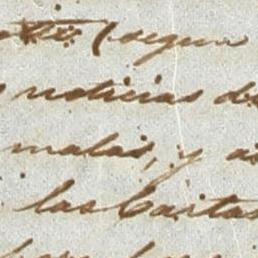 (segun
noticias de
malas, y
las Cartas